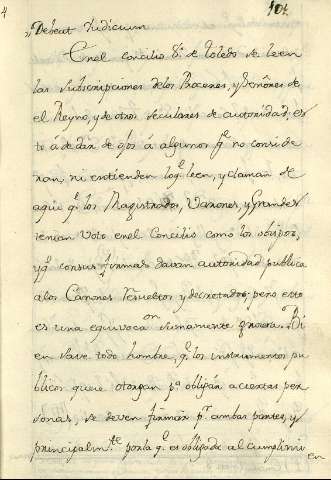 4
104.
„Debent Judicium
En el concilio 8º. de Toledo se leen
las subscripciones de los Proceres, y Señores de
el Reyno, y de otros seculares de autoridad; es
to á de dar de ojos á algunos qe. no consi de
ran, ni entienden lo qe. leen, y claman de
aqui qe. los Magistrados, Varones, y Grandes
tenian Voto en el Concilio como los obispos,
y qe. con sus firmas davan autoridad publica
a los Canones resueltos y decretados; pero esto
es una equivocaon sumamente grosera. Bi
en save todo hombre, qe. los instrumentos pu
blicos que se otorgan pa. obligar a ciertas per
sonas, se deven firmar pr. ambas partes, y
principalmte. por la qe. es obligada al cumplimi
en